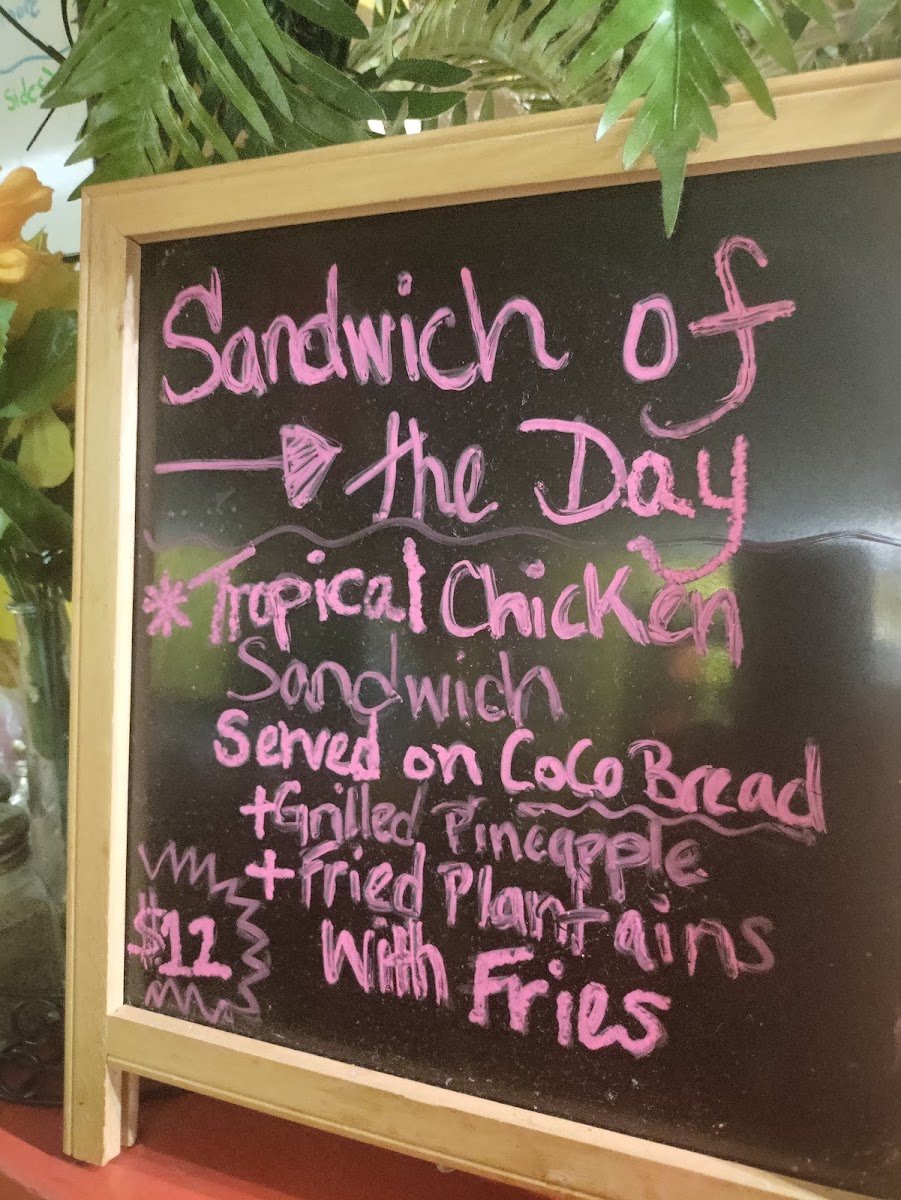 sides
Sandwich of
the Day
* Tropical Chicken
Sandwich
Served on CoCo Bread
+Grilled Pineapple
+Fried Plantains
With Fries
$12